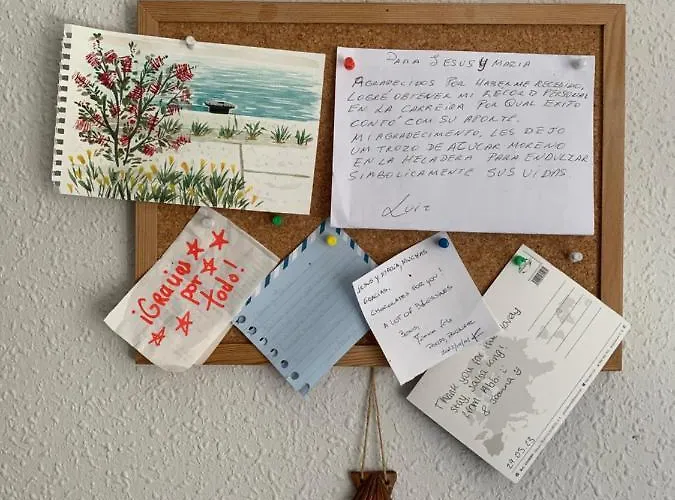 PARA JESUS Y MARIA
AGRADECIDOS POR HABERME RECIBIDO,
LOGRÉ OBTENER MI RECORD PERSONAL
EN LA CARREIRA POR QUAL EXITO
CONTÓ COM SU APORTE.
MI AGRADECIMENTO, LES DEJO
UM TROZO DE AZUCAR MORENO
EN LA HELADERA PARA ENDULZAR
SIMBOLICAMENTE SUS VIDAS
LUIZ
¡Gracias
por
todo!
JESUS Y MARIA, MUCHAS
GRACIAS.
CHOCOLATES FOR YOU!
A LOT OF BLESSINGS
Thank you for the lovely
stay,
long!
from Abbi
& Joanna
24.05.23